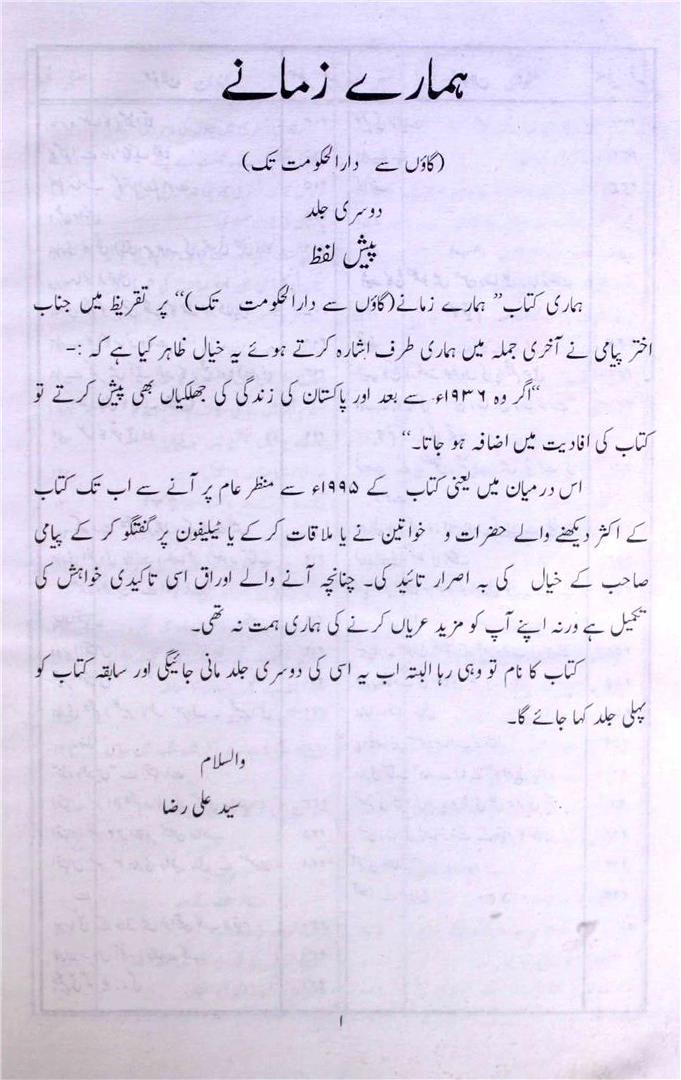 ہمارے زمانے
(گاؤں سے دارالحکومت تک)
دوسری جلد
پیش لفظ
ہماری کتاب ”ہمارے زمانے (گاؤں سے دارالحکومت تک)“ پر تقریظ میں جناب
اختر پیامی نے آخری جملہ میں ہماری طرف اشارہ کرتے ہوئے یہ خیال ظاہر کیا ہے کہ :-
”اگر وہ ۱۹۳۶ء سے بعد اور پاکستان کی زندگی کی جھلکیاں بھی پیش کرتے تو
کتاب کی افادیت میں اضافہ ہو جاتا۔“
اس درمیان میں یعنی کتاب کے ۱۹۹۵ء سے منظر عام پر آنے سے اب تک کتاب
کے اکثر دیکھنے والے حضرات و خواتین نے یا ملاقات کر کے یا ٹیلیفون پر گفتگو کر کے پیامی
صاحب کے خیال کی بہ اصرار تائید کی۔ چنانچہ آنے والے اوراق اسی تاکیدی خواہش کی
تکمیل ہے ورنہ اپنے آپ کو مزید عریاں کرنے کی ہماری ہمت نہ تھی۔
کتاب کا نام تو وہی رہا البتہ اب یہ اسی کی دوسری جلد مانی جائیگی اور سابقہ کتاب کو
پہلی جلد کہا جائے گا۔
والسلام
سید علی رضا
۱